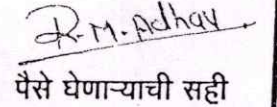 R.M. Adhav
पैसे घेणाऱ्याची सही